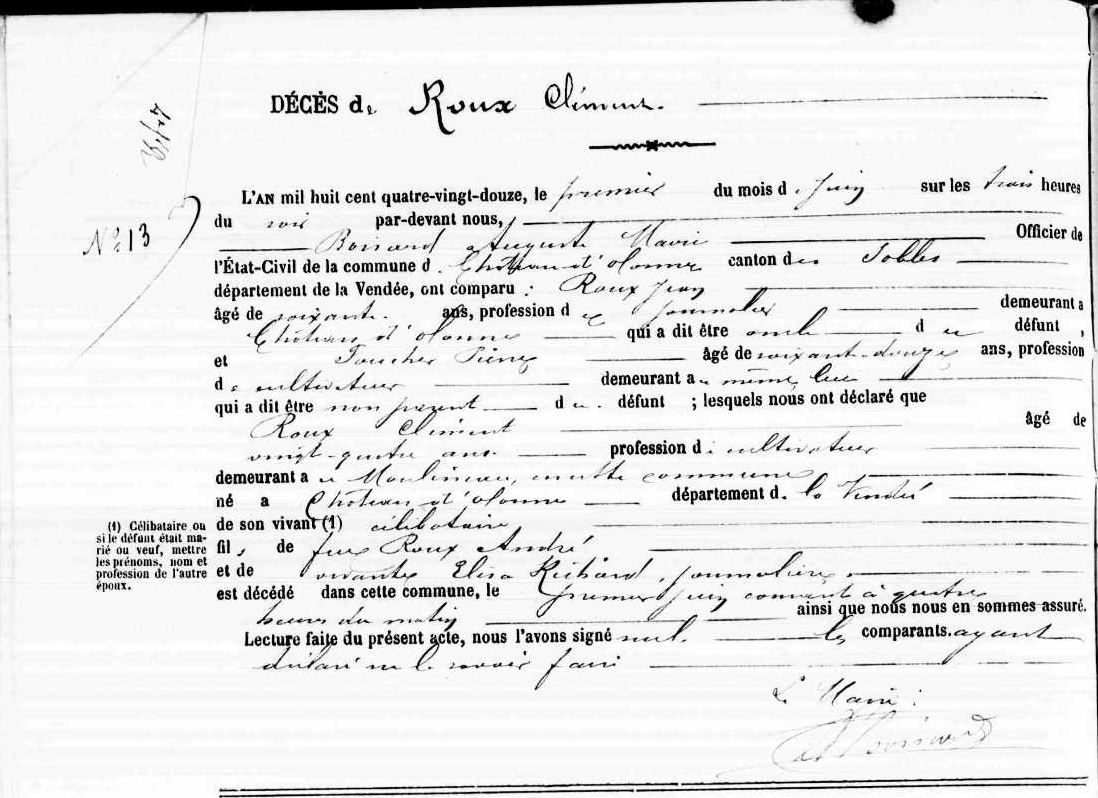 DÉCÈS de Roux Clément.
L'AN mil huit cent quatre-vingt-douze, le premier du mois de Juin sur les trois heures
du soir par-devant nous,
Boisard Auguste Maire Officier de
N° 13
l'État-Civil de la commune d Château d'olonne canton des Sables
département de la Vendée, ont comparu : Roux Jean
âgé de soixante ans, profession de journalier demeurant a
Château d'olonne qui a dit être oncle d u défunt,
et Pierre âgé de soixante-douze ans, profession
de cultivateur demeurant au même lieu
qui a dit être non parent d u défunt ; lesquels nous ont déclaré que
Roux Clément âgé de
vingt-quatre ans profession de cultivateur
demeurant a cette commune
né a Château d'olonne département de la Vendée
(1) Célibataire ou si le défunt était ma-
rié ou veuf, mettre
les prénoms, nom et
profession de l'autre
époux.
de son vivant (1) célibataire
fils de feu Roux André
et de vivante Elisa Richard, journalière
est décédé dans cette commune, le premier juin courant à quatre
heures du matin ainsi que nous nous en sommes assuré.
Lecture faite du présent acte, nous l'avons signé seul. les comparants ayant
déclaré ne le savoir faire
Le Maire :